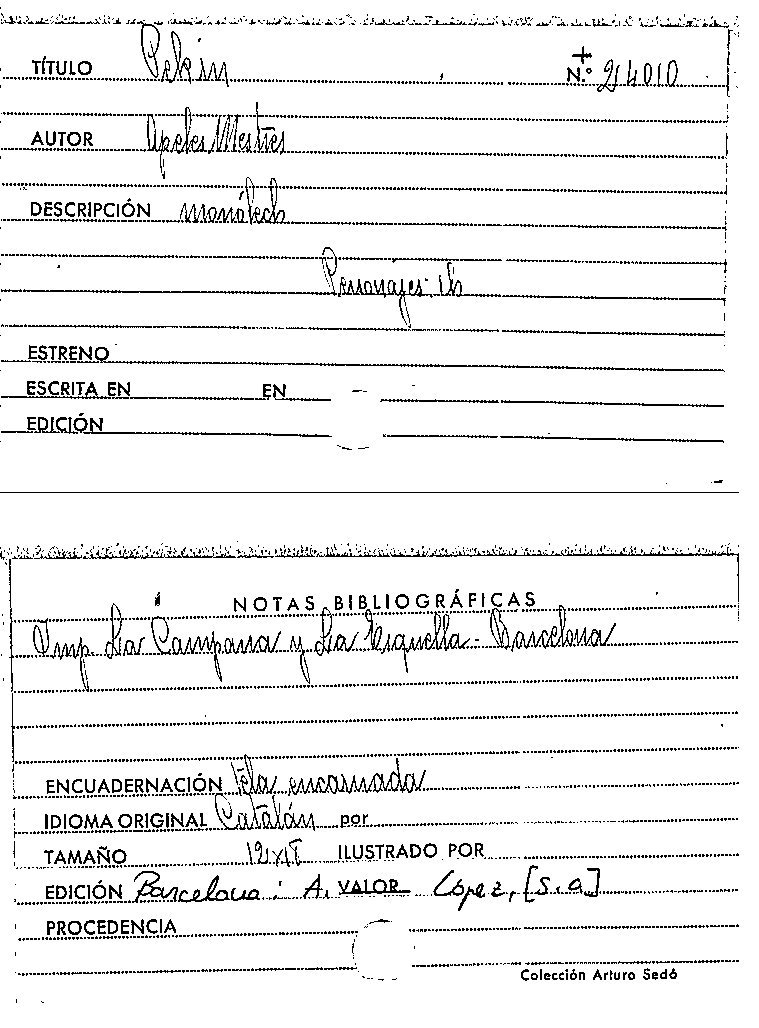 TÍTULO Pekin N.º 24010
AUTOR Apeles Mestres
DESCRIPCIÓN monólech
Personajes: 1h
ESTRENO
ESCRITA EN EN
EDICIÓN
NOTAS BIBLIOGRÁFICAS
Imp. La Campana y La Esquella - Barcelona
ENCUADERNACIÓN tela encarnada
IDIOMA ORIGINAL Catalán por
TAMAÑO ILUSTRADO POR
EDICIÓN Barcelona: A. VALOR López, [s.a]
PROCEDENCIA
Colección Arturo Sedó